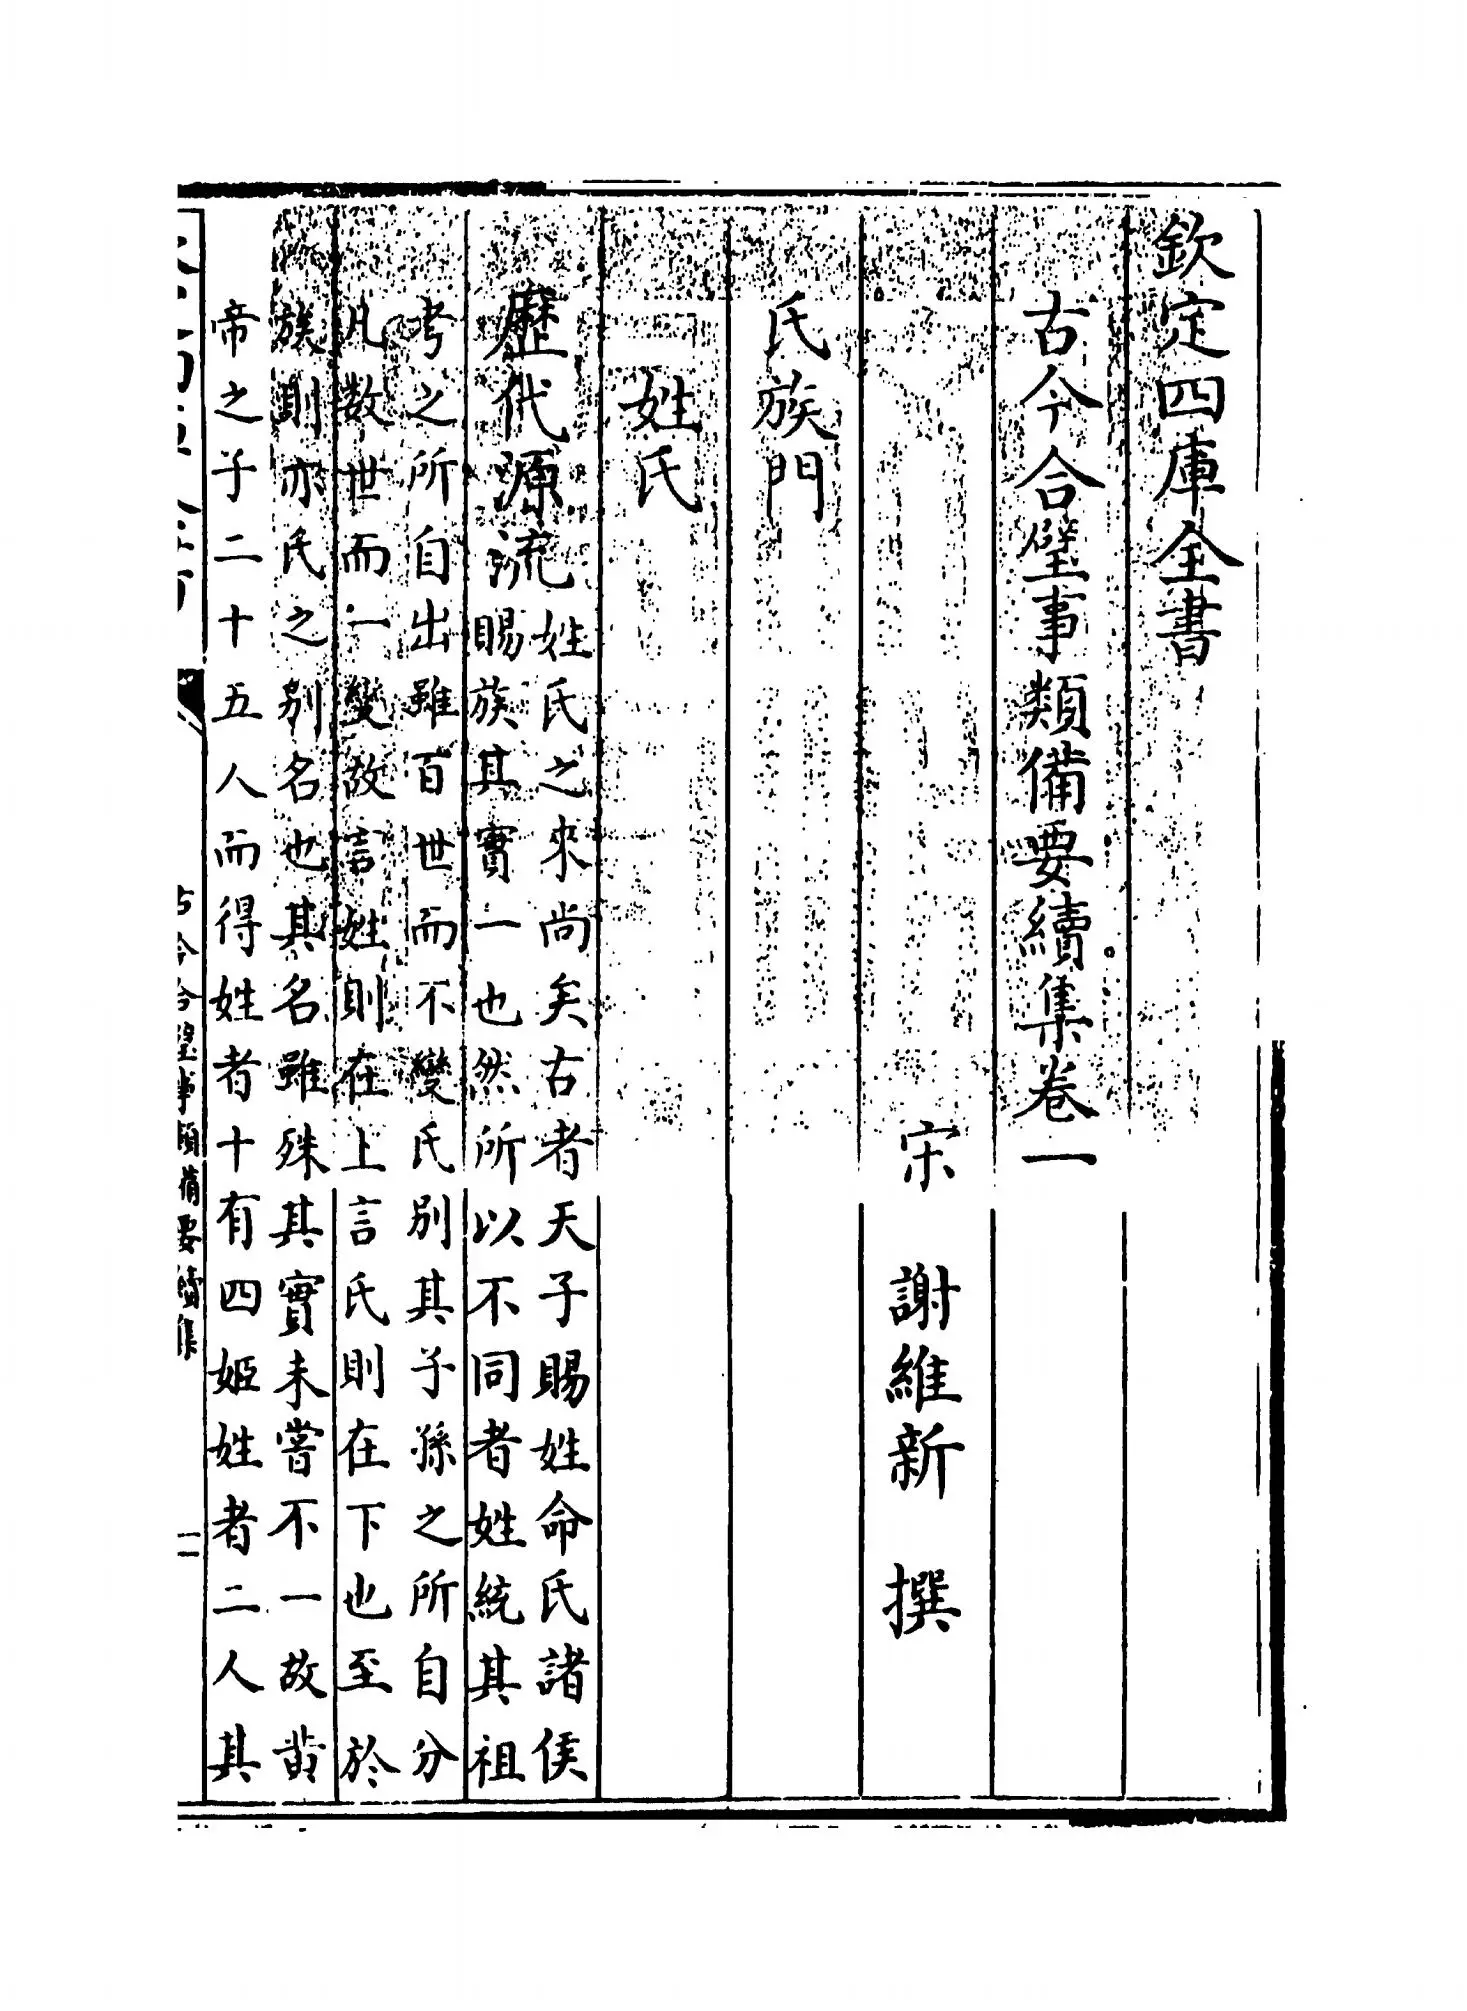 欽定四庫全書
古今合璧事類備要續集卷一
宋 謝維新 撰
氏族門
姓氏
歷代源流
姓氏之來尚矣古者天子賜姓命氏諸侯
賜族其實一也然所以不同者姓統其祖
考之所自出雖百世而不變氏別其子孫之所自分
凡數世而一變故言姓則在上言氏則在下也至於
族則亦氏之別名也其名雖殊其實未嘗不一故黃
帝之子二十五人而得姓者十有四姬姓者二人其
古今合璧事類備要續集